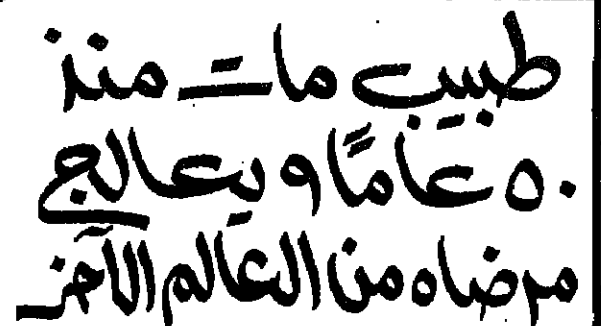 طبيب مات منذ
٥٠ عامًا ويعالج
مرضاه من العالم الآخر